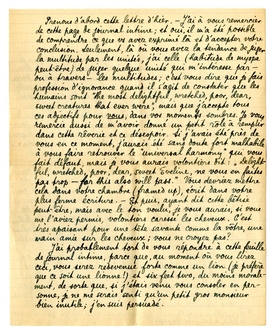 Prenons d'abord cette lettre d'hier. – J'ai à vous remercier
de cette page de journal intime; et oui, il m'a été possible
de comprendre ce que vous avez exprimé là et d'accepter votre
conclusion. Seulement, là où vous avez la tendance de juger
la multitude par les unités, j'ai celle (habitude de myope
peut-être) de juger quelque unité qui m'intéresse par-
ci à travers les multitudes; c'est vous dire que je fais
profession d'ignorance quand il s'agit de constater que les
humains sont "the most delightful, wretched, poor, dear,
sweet creatures that ever were", mais que j'accepte tous
ces adjectifs pour vous, dans vos moments sombres. Je vous
remercie aussi de m'avoir donné un petit rôle à remplir
dans cette rêverie et ce désespoir. Si j'avais été près de
vous en ce moment, j'aurais été sans doute fort malhabile
à vous faire retrouver l'"universal harmony" qui vous
fait défaut, mais je vous aurais volontiers dit: "Delight-
ful, wretched, poor, dear, sweet Eveline, we can finish
pas trop – for this also will pass." Vous devriez mettre
cela dans votre chambre (framed up), écrit dans votre
plus ferme écriture. – Et puis, ayant dit cette bêtise
peut-être, mais avec le ton voulu, je vous aurais, si vous
me l'aviez permis, volontiers caressé les cheveux. C'est
très apaisant pour une tête savante comme la vôtre, une
main amie sur les cheveux; vous ne croyez pas?
J'ai probablement tort de vous répondre à cette feuille
de journal intime, parce que, au moment où vous lirez
ceci, vous serez redevenue forte comme un lion (je préfère
que ce soit une lionne!) et six feet two, du moins morale-
ment, de sorte que, si j'étais venu vous consoler en per-
sonne, je ne me serais senti qu'un petit gros monsieur
bien inutile; j'en suis persuadé.